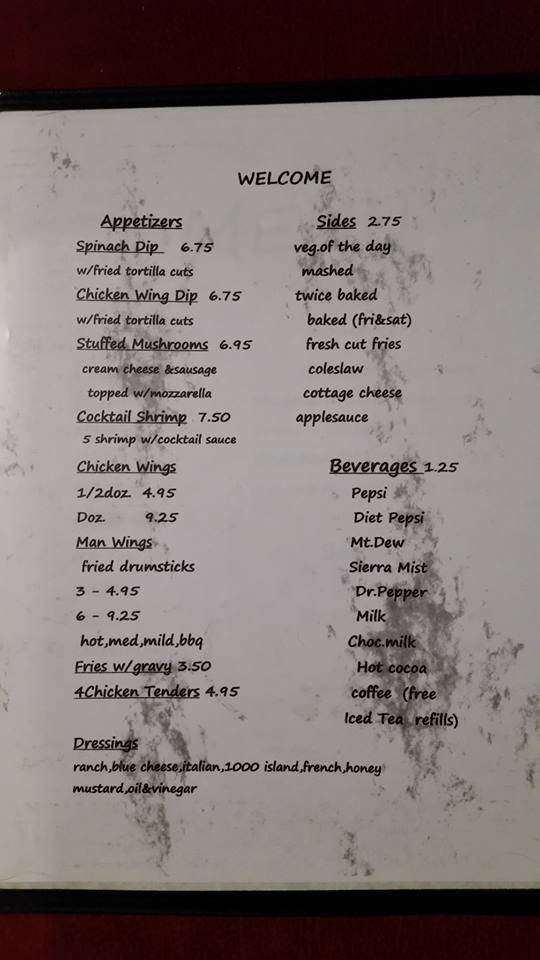 WELCOME
Appetizers
Spinach Dip 6.75
w/fried tortilla cuts
Chicken Wing Dip 6.75
w/fried tortilla cuts
Stuffed Mushrooms 6.95
cream cheese &sausage
topped w/mozzarella
Cocktail Shrimp 7.50
5 shrimp w/cocktail sauce
Chicken Wings
1/2doz. 4.95
Doz. 9.25
Man Wings
fried drumsticks
3 - 4.95
6 - 9.25
hot,med,mild,bbq
Fries w/gravy 3.50
4Chicken Tenders 4.95
Sides 2.75
veg.of the day
mashed
twice baked
baked (fri&sat)
fresh cut fries
coleslaw
cottage cheese
applesauce
Beverages 1.25
Pepsi
Diet Pepsi
Mt.Dew
Sierra Mist
Dr.Pepper
Milk
Choc.milk
Hot cocoa
coffee (free
Iced Tea refills)
Dressings
ranch,blue cheese,italian,1000 island,french,honey
mustard,oil&vinegar